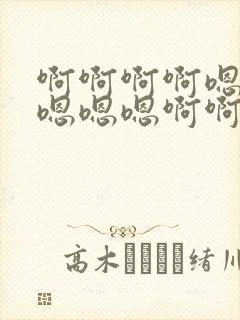 啊啊啊啊嗯
嗯嗯嗯啊啊
高木
緒川